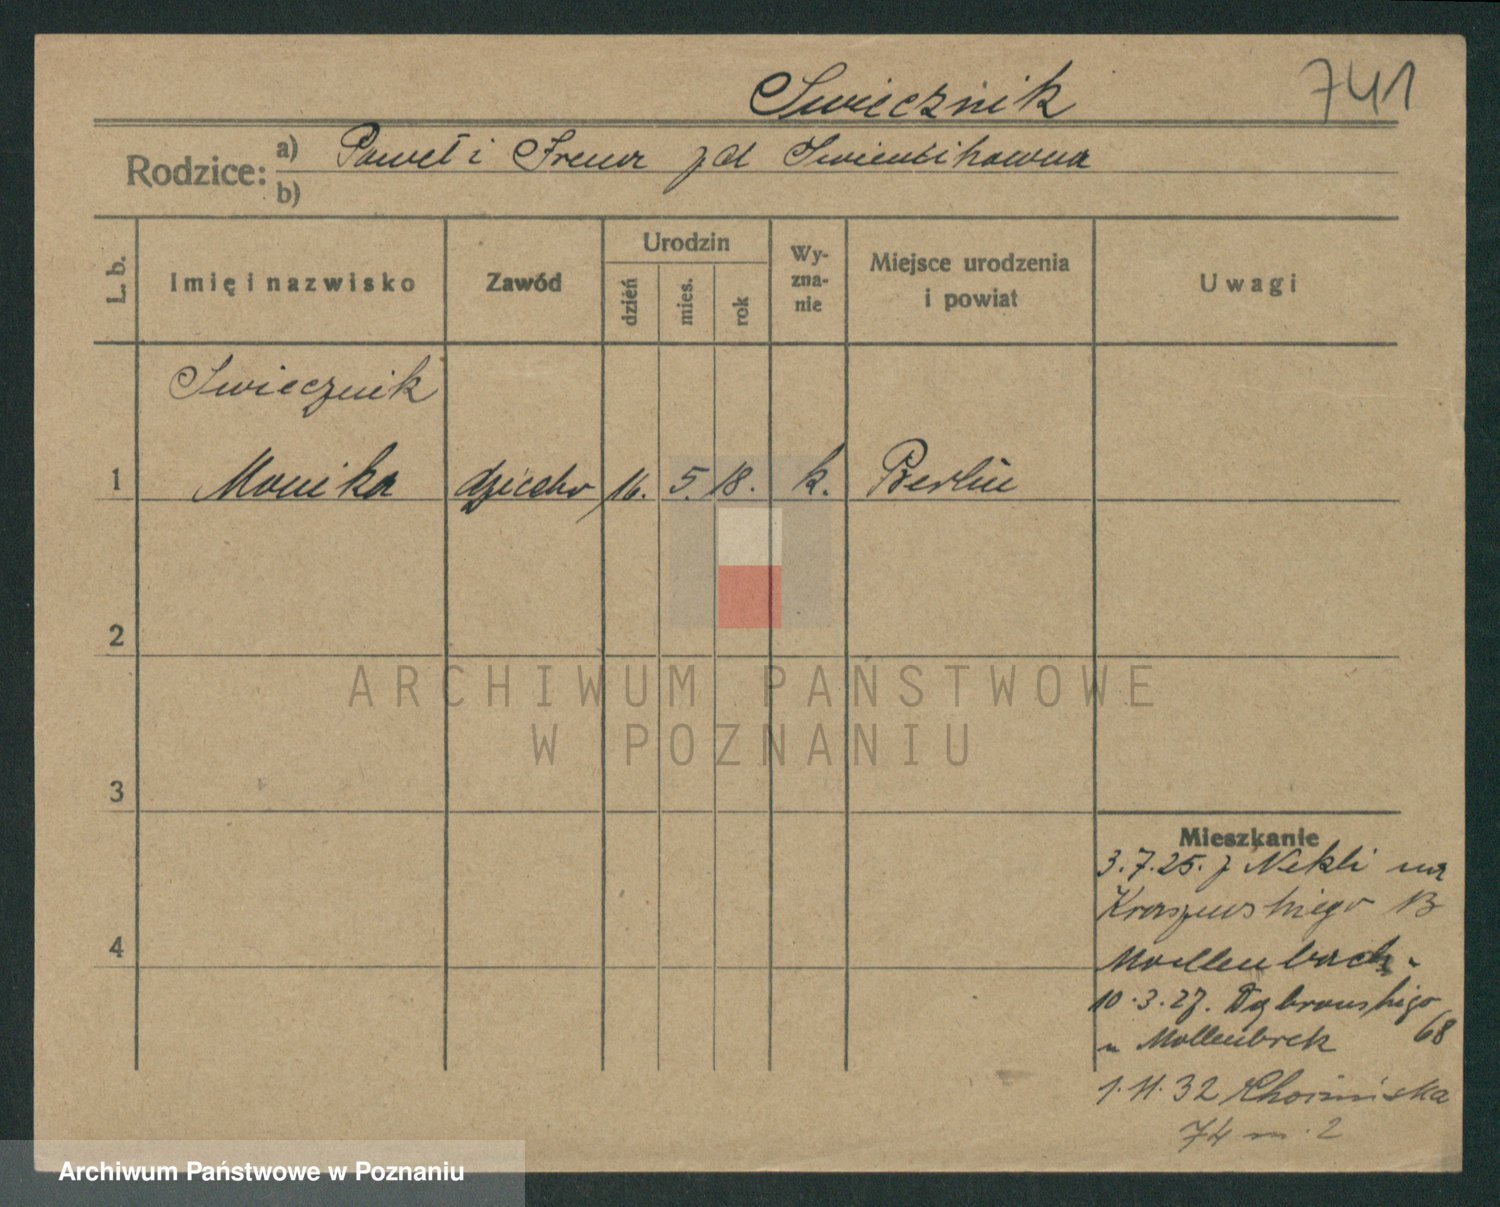 Swiecznik
741
Rodzice: a) Paweł i Irena zd
b)
L. b.
Imię i nazwisko
Zawód
Urodzin
dzień
mies.
rok
Wy-
zna-
nie
Miejsce urodzenia
i powiat
Uwagi
Swiecznik
1 Monika dziecko 16. 5. 18. k. Berlin
2
ARCHIWUM PAŃSTWOWE
W POZNANIU
3
Mieszkanie
3.7.25. z Nekli na
Kraszewskiego 13
4
10.3.27. Dąbrowskigo
68
1.11.32
74 m. 2
Archiwum Państwowe w Poznaniu